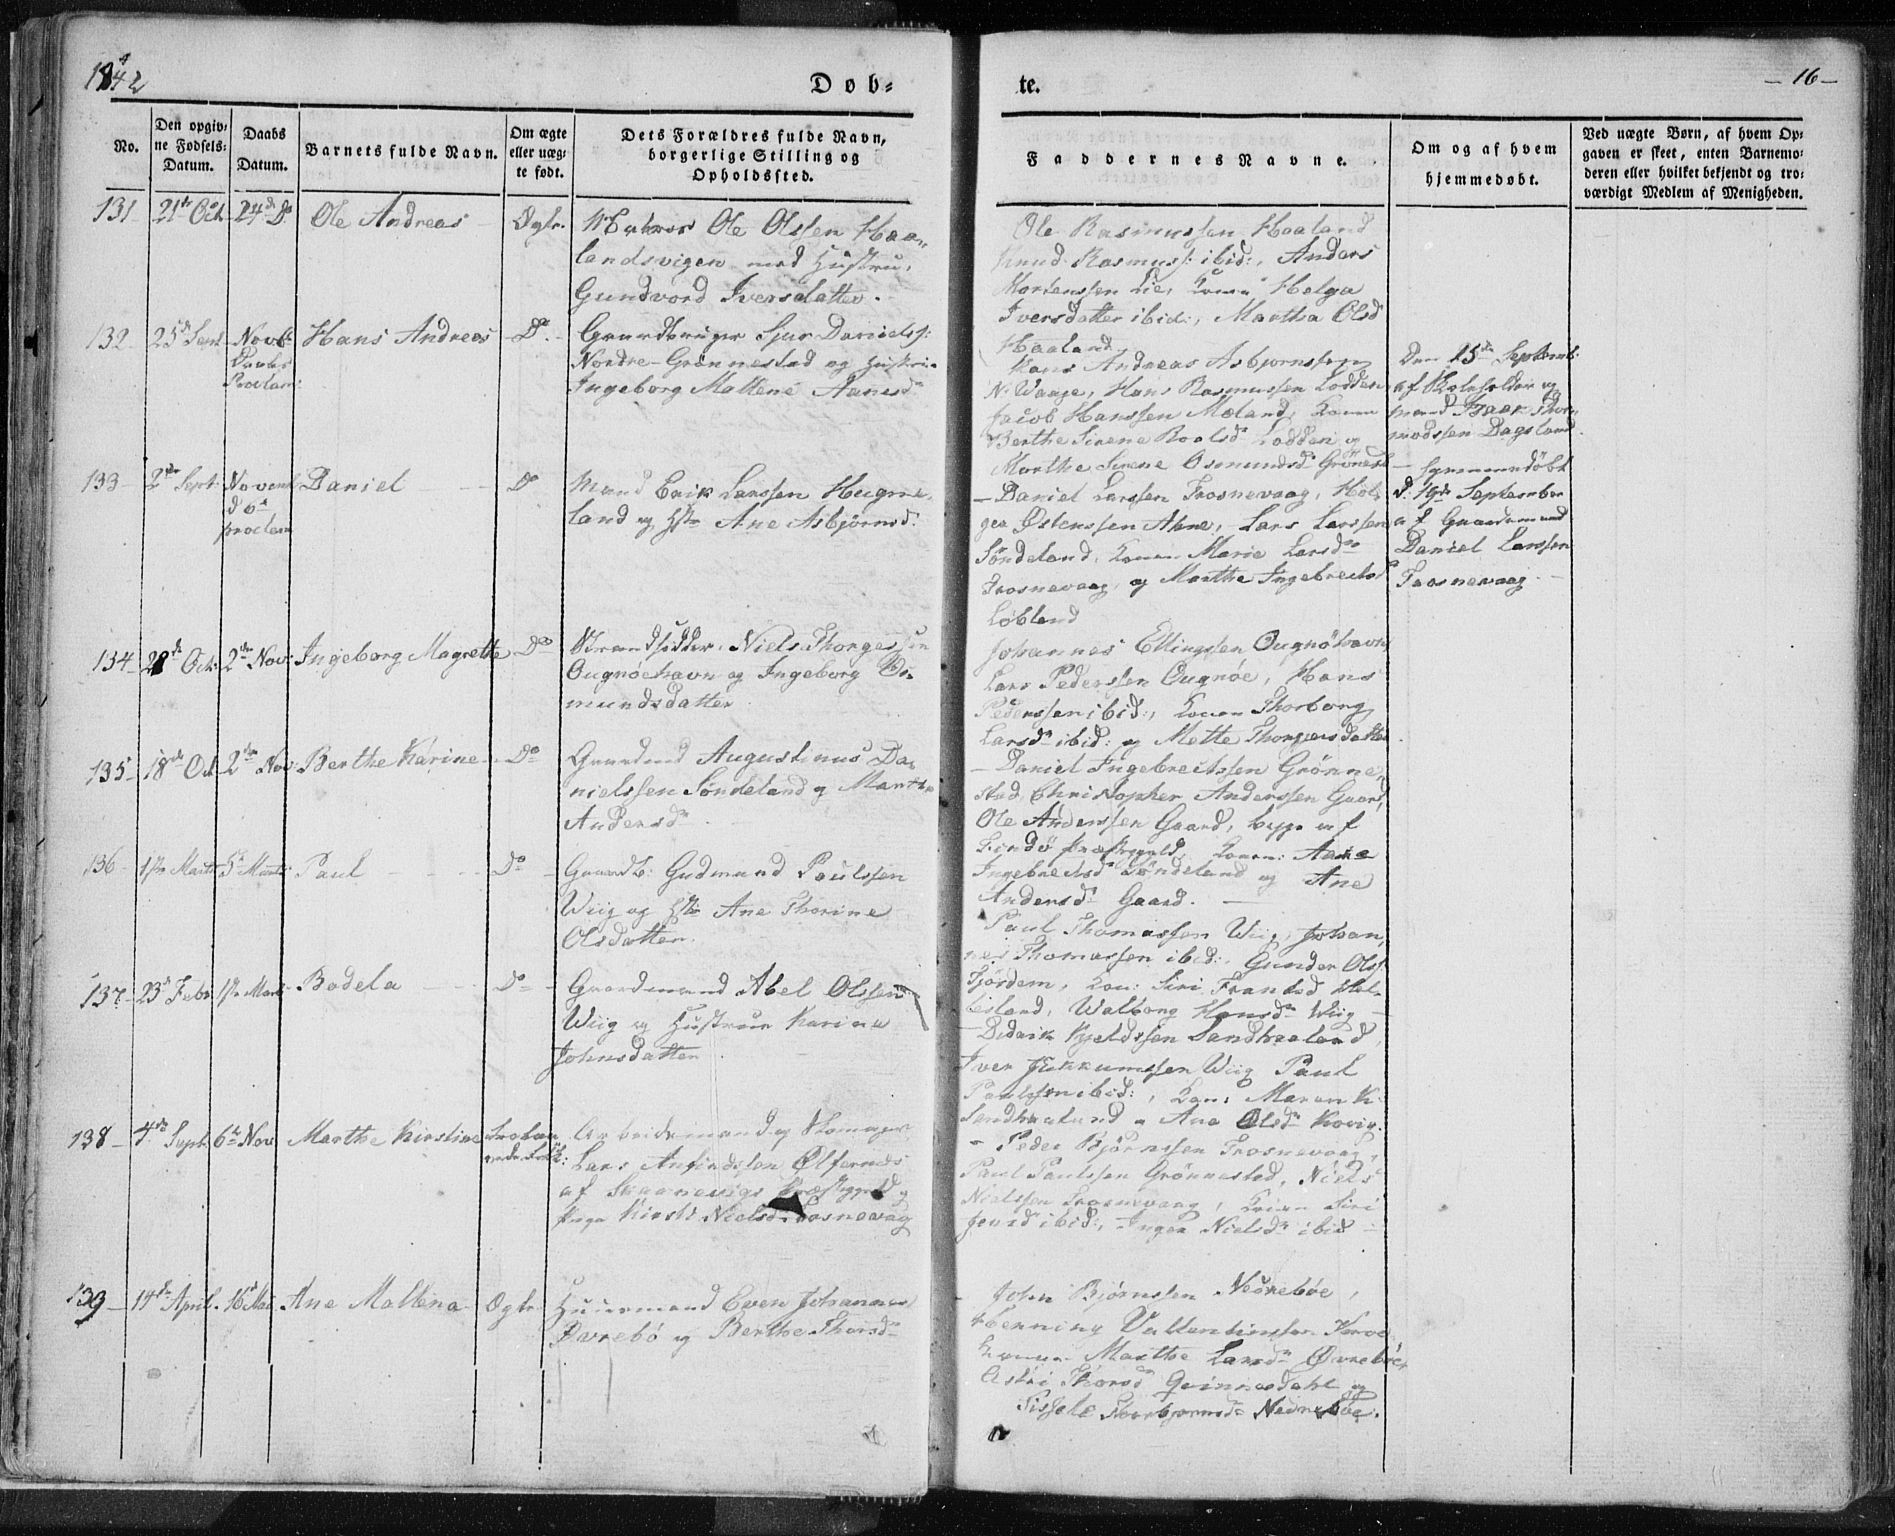 1842
Døb=
te.
- 16 -
No.
Den opgiv=
ne Fødsels=
Datum.
Daabs
Datum.
Barnets fulde Navn.
Om ægte
eller uæg=
te født.
Dets Forældres fulde Navn,
borgerlige Stilling og
Opholdssted.
Faddernes Navne.
Om og af hvem
hjemmedøbt.
Ved uægte Børn, af hvem Op=
gaven er skeet, enten Barnemo=
deren eller hvilket bekjendt og tro=
værdigt Medlem af Menigheden.
131 21de Oct 24de Do Ole Andreas Ægte.
Ole Olssen Haa=
landsvigen med Hustru
Gundvord Iversdatter.
Ole Rasmussen Haaland
Knud Rasmuss: ibid:, Anders
Mortenssen Lie, Konen Helga
Iversdatter ibid:, Martha Olsd
Haaland
132 25de Sept Novbr Hans Andreas Do
Proclam:
Gaardbruger Sjur Daniels:
Nordre Grønnestad og Hustru
Ingeborg Mallene Aanesd
Hans Andreas Asbjørnssen
N: Waage, Hans Rasmussen Lodden
Jacob Hanssen Mæland, Konen
Berthe Sirene Roalsd Lodden og
Marthe Sirene Osmundsd Grønest
Den 25de Septemb:
af Skoleholder og
mand Isaak Thor
modssen Dagsland
133 2den Sept: Novemb: Daniel Do
d 6te
proclam
Mand Erik Larssen Hugne=
land og Hstr Ane Asbjørnsd:
- Daniel Larssen Trosnevaag, Hol=
ger Østenssen Ahne, Lars Larssen
Søndeland, Konen Marie Larsd
Trosnevaag, og Marthe Ingebretsd
Løbland
- hjemmedøbt
d: 19de September
af Gaardmand
Daniel Larssen
Trosnevaag -
134 28de Oct: 2den Nov: Ingeborg Magrethe Do
Strandsidder Niels Thorgerssen
Ougnøehavn og Ingeborg Os=
mundsdatter
Johannes Ellingssen Ougnøhavn
Lars Pederssen Ougnøe, Hans
Pederssen ibid:, Konen Thorborg
Larsd ibid: og Mette Thorgersdatter
135 18de Oct 2den Nov: Berthe Karine Do
Gaardmd Augustinus Da=
nielssen Søndeland og Martha
Andersd
- Daniel Ingebretssen Grønne=
stad Christopher Anderssen Gaard,
Ole Anderssen Gaard, begge af
Findø Præstegjeld, Konen: Aane
Ingebretsd Søndeland og Ane
Andersd Gaard. -
136 1ste Marts 5te Marts Paul Do
Gaardb: Gudmund Paulssen
Wiig og Hstr Ane Thorine
Olsdatter.
Paul Thomassen Wiig, Johan=
nes Thomassen ibid:, Gunder Olss:
Fjordem, Kon: Siri Frantsd Hel=
lesland, Walborg Hansd Wiig
137 23de Febr 1ste Marts Bodela Do
Gaardmand Abel Olssen
Wiig og Hustrue Karine
Johnsdatter
- Didrik Kjeldssen Sandhaaland,
Iver Wiig Paul
Paulssen ibid:, Kon: Maren K.
Sandhaaland og Ane Olsd Kovig.
138 4de Sept 6te Nov Marthe Kirstine
Arbeidsmand og Skomager
Lars Anfindssen Ølfernæs
af Skaanevigs Præstegjeld og
Pige Kirsti Nielsd: Trosnevaag
- Peder Bjørnssen Trosnevaag,
Paul Paulssen Grønnestad, Niels
Nielssen Trosnevaag, Konen Siri
ibid:, Inger Nielsd ibid -
139 14de April 16 Mai Ane Mallena Ægte
Huusmand Even Johannes
Øvrebø og Berthe Thorsd
John Bjørnssen Nedrebøe,
Henning Vallentinssen
Konen Marthe Larsd Øvrebøe,
Astri Thorsd Qvinnesdahl og
Sissele Thorbjørnsd Nedrebøe.